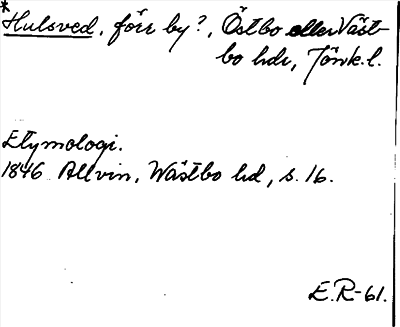 *
Hulsved, förr by?, Östbo eller Väst-
bo hdr, Jönk.l.
Etymologi.
1846 Allvin, Wästbo hd, s. 16.
E.R-61.